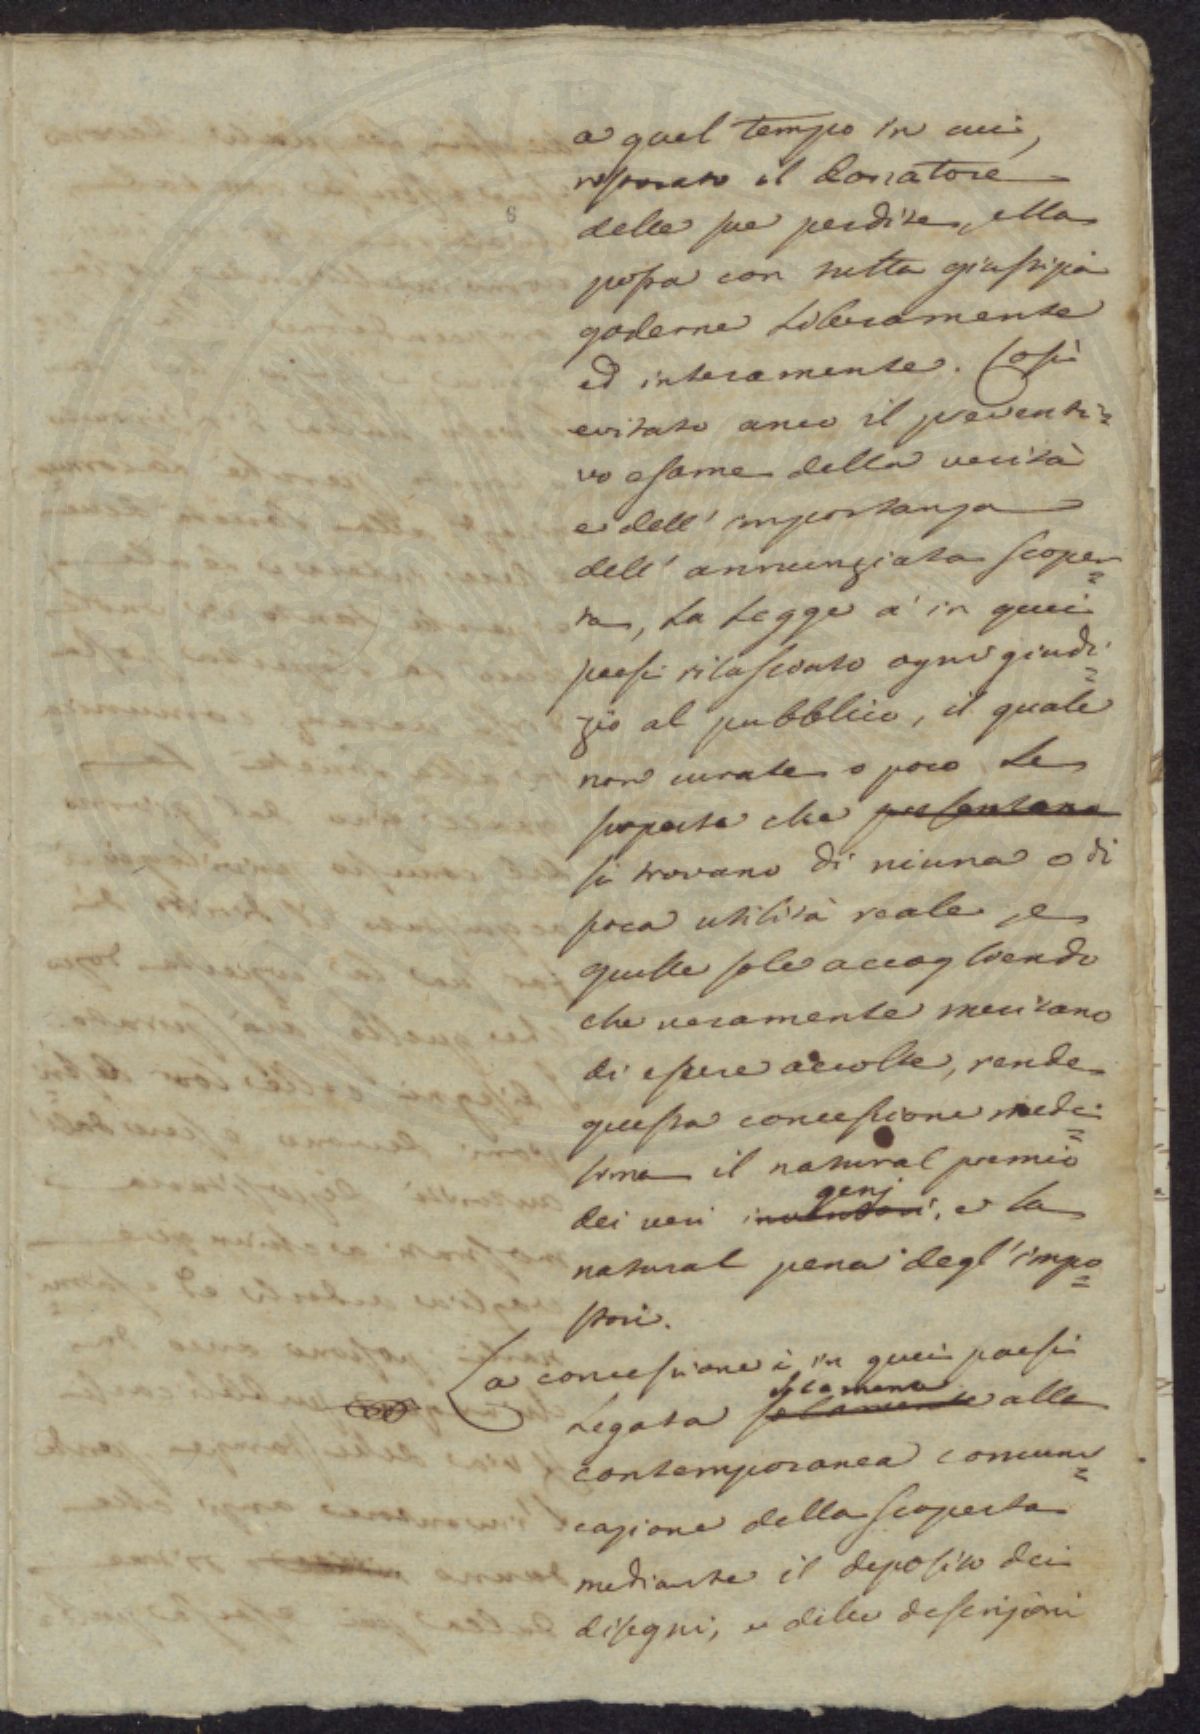 a quel tempo in cui,
ristorato il donatore
delle sue perdite, ella
possa con tutta giustizia
goderne liberamente
ed interamente. Così
evitato anco il preventi=
vo esame della verità
e dell' importanza
dell' annunziata scoper=
ta, la Legge à in quei
paesi rilasciato ogni giudi=
zio al pubblico, il quale
non curate o poco le
scoperte che presentano
si trovano di niuna o di
poca utilità reale, e
quelle sole accogliendo
che veramente meritano
di essere accolte, rende
questa concessione mede=
sima il natural premio
genj
dei veri inventori, e la
natural pena degl' impo=
stori.
La concessione è in quei paesi
legata solamente alla
contemporanea comuni=
cazione della scoperta
mediante il deposito dei
disegni, e delle descrizioni